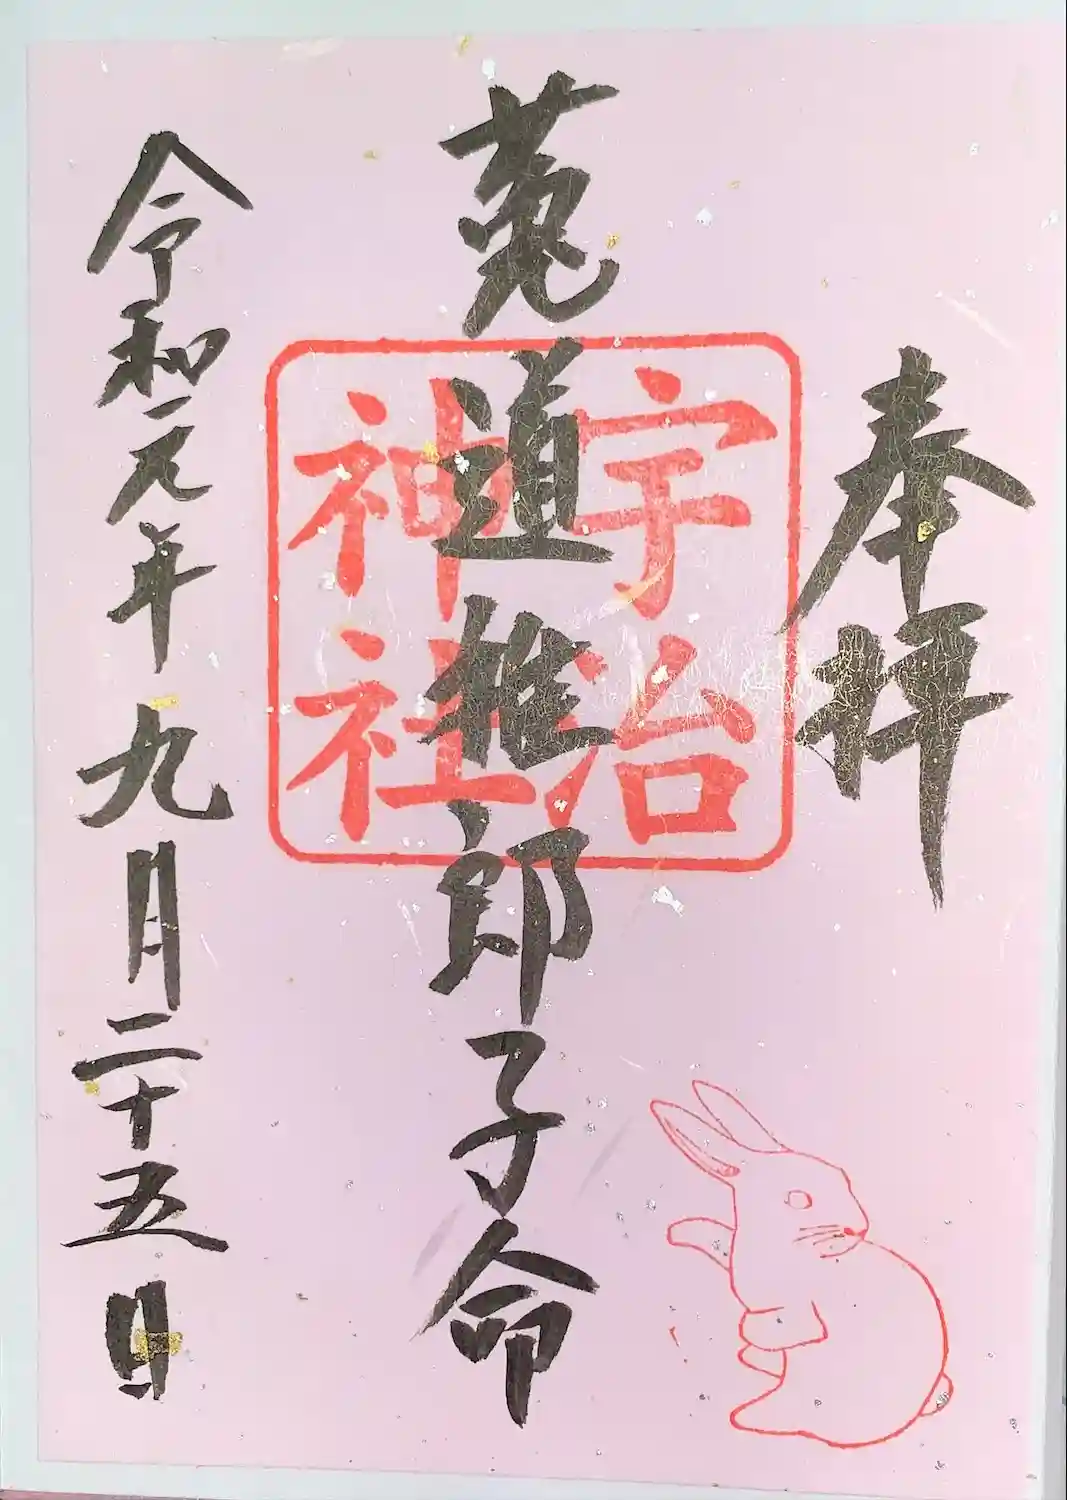 奉拝
宇治
神社
菟道稚郎子命
令和元年九月二十五日